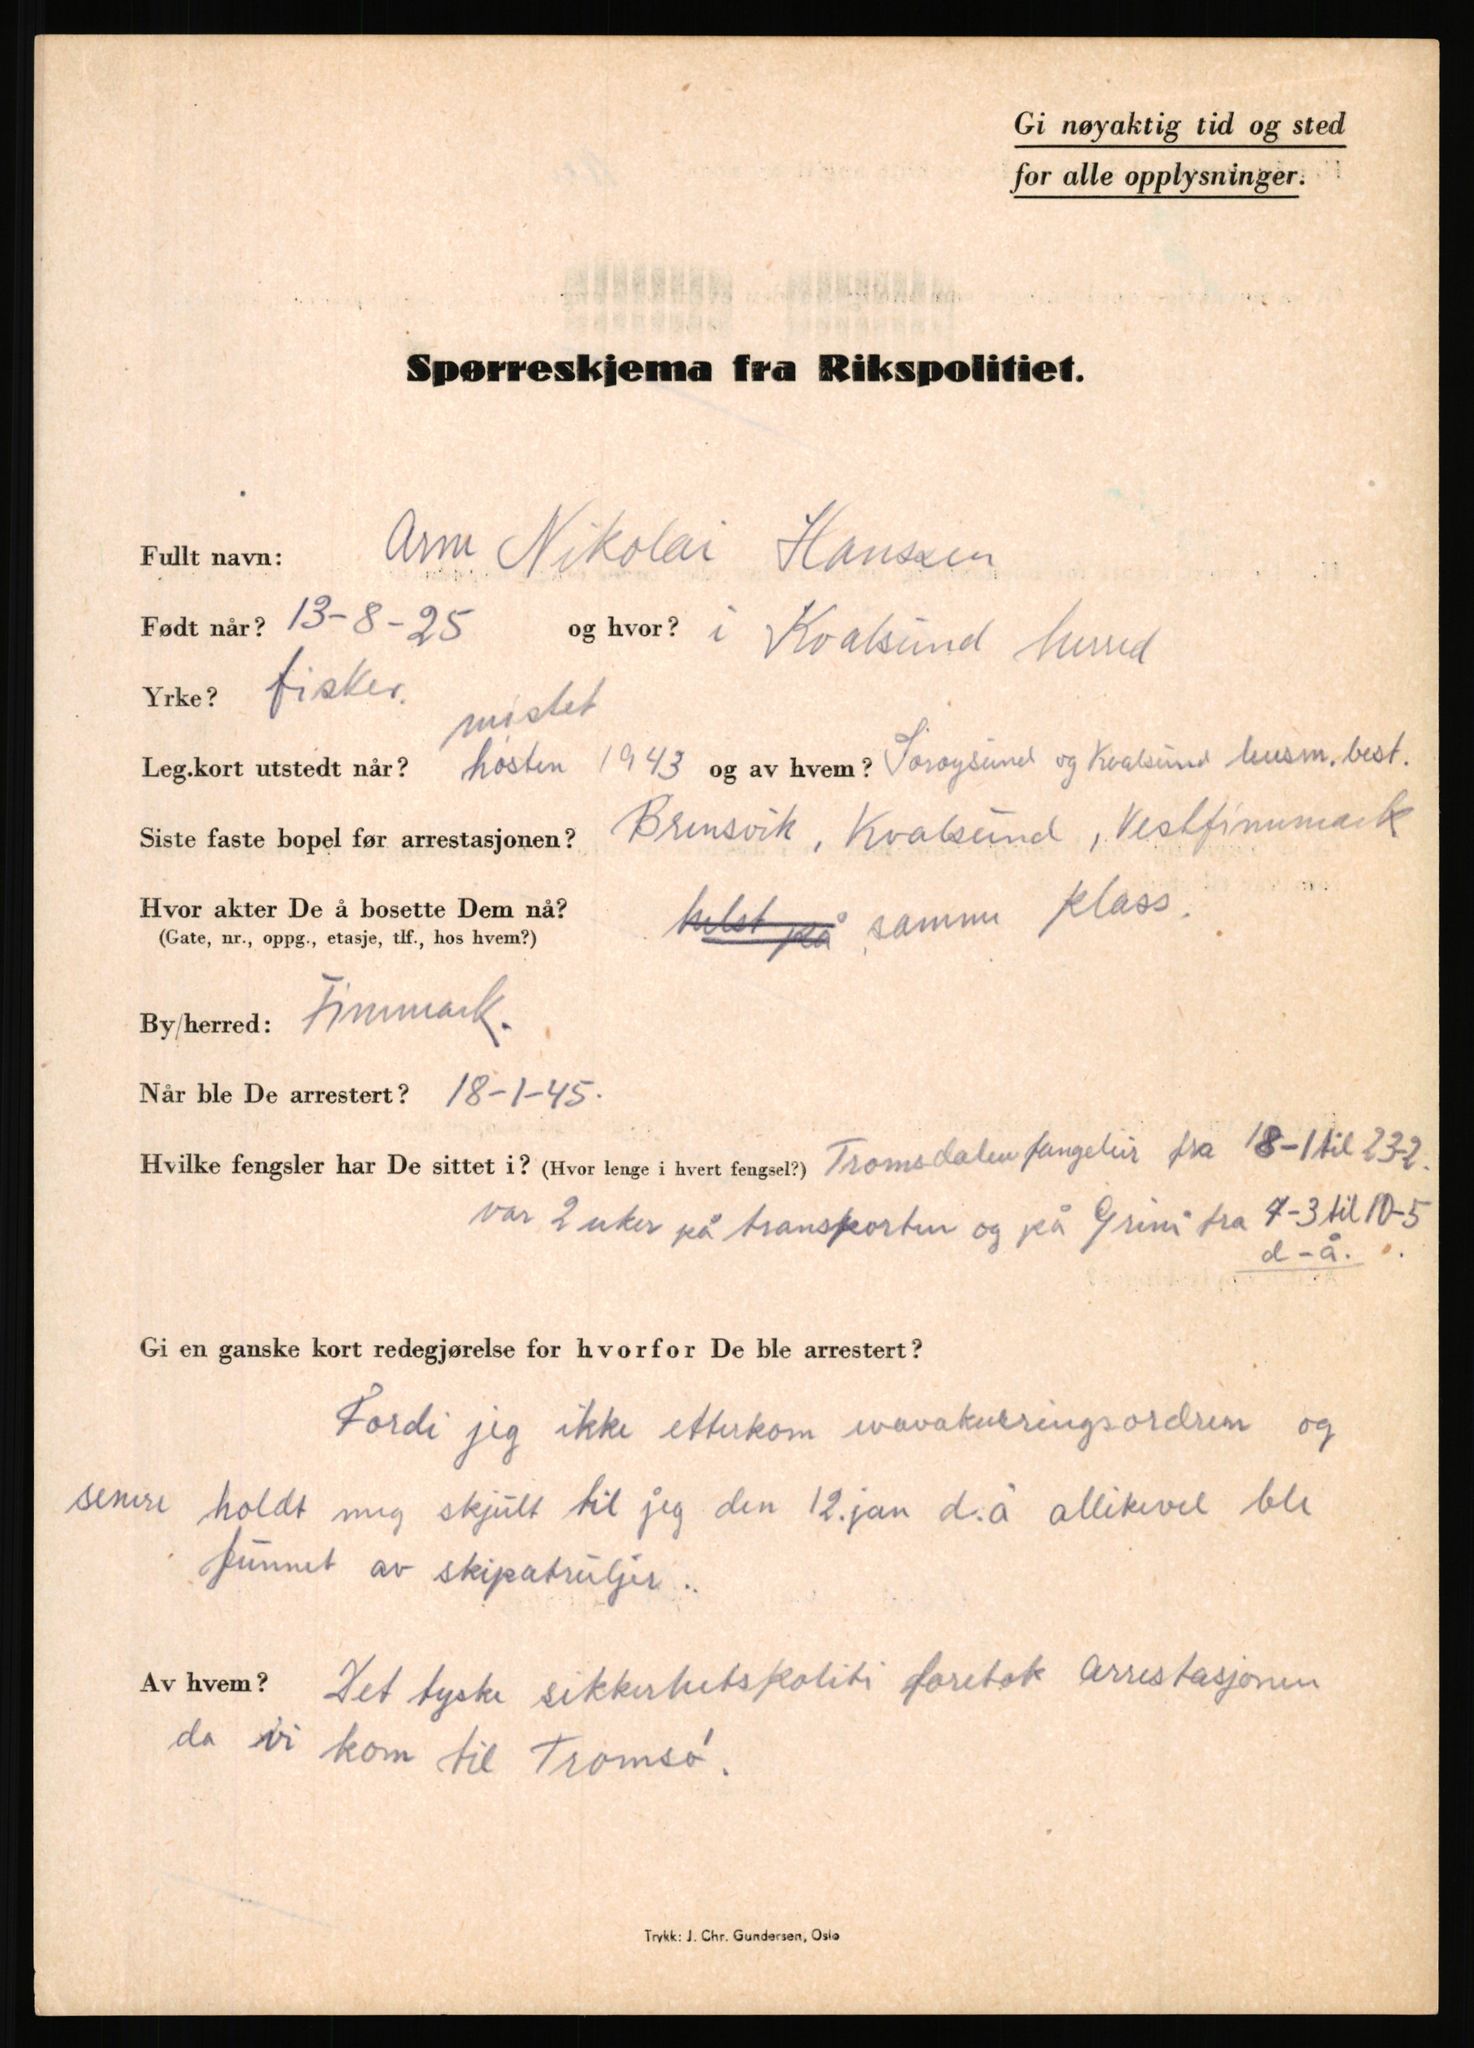 Gi nøyaktig tid og sted
for alle opplysninger.
Spørreskjema fra Rikspolitiet.
Fullt navn: Arne Nikolai Hanssen
Født når? 13-8-25 og hvor? i Kvalsund herred
Yrke? fisker.
mistet
Leg.kort utstedt når? høsten 1943 og av hvem? Sørøysund og Kvalsund lensm. best.
Siste faste bopel før arrestasjonen? Brensvik, Kvalsund, Vestfinnmark
Hvor akter De å bosette Dem nå? helst på samme plass.
(Gate, nr., oppg., etasje, tlf., hos hvem?)
By/herred: Finnmark.
Når ble De arrestert? 18-1-45.
Hvilke fengsler har De sittet i? (Hvor lenge i hvert fengsel?) Tromsdalen fangeleir fra 18-1 til 23-2.
var 2 uker på transporten og på Grini fra 7-3 til 10-5
d-å.
Gi en ganske kort redegjørelse for hvorfor De ble arrestert?
Fordi jeg ikke etterkom evavakueringsordren og
senere holdt meg skjult til jeg den 12. jan d.å allikevel ble
funnet av skipatruljer..
Av hvem? Det tyske sikkerhetspoliti foretok arrestasjonen
da vi kom til Tromsø.
Trykk: J. Chr. Gundersen, Oslo